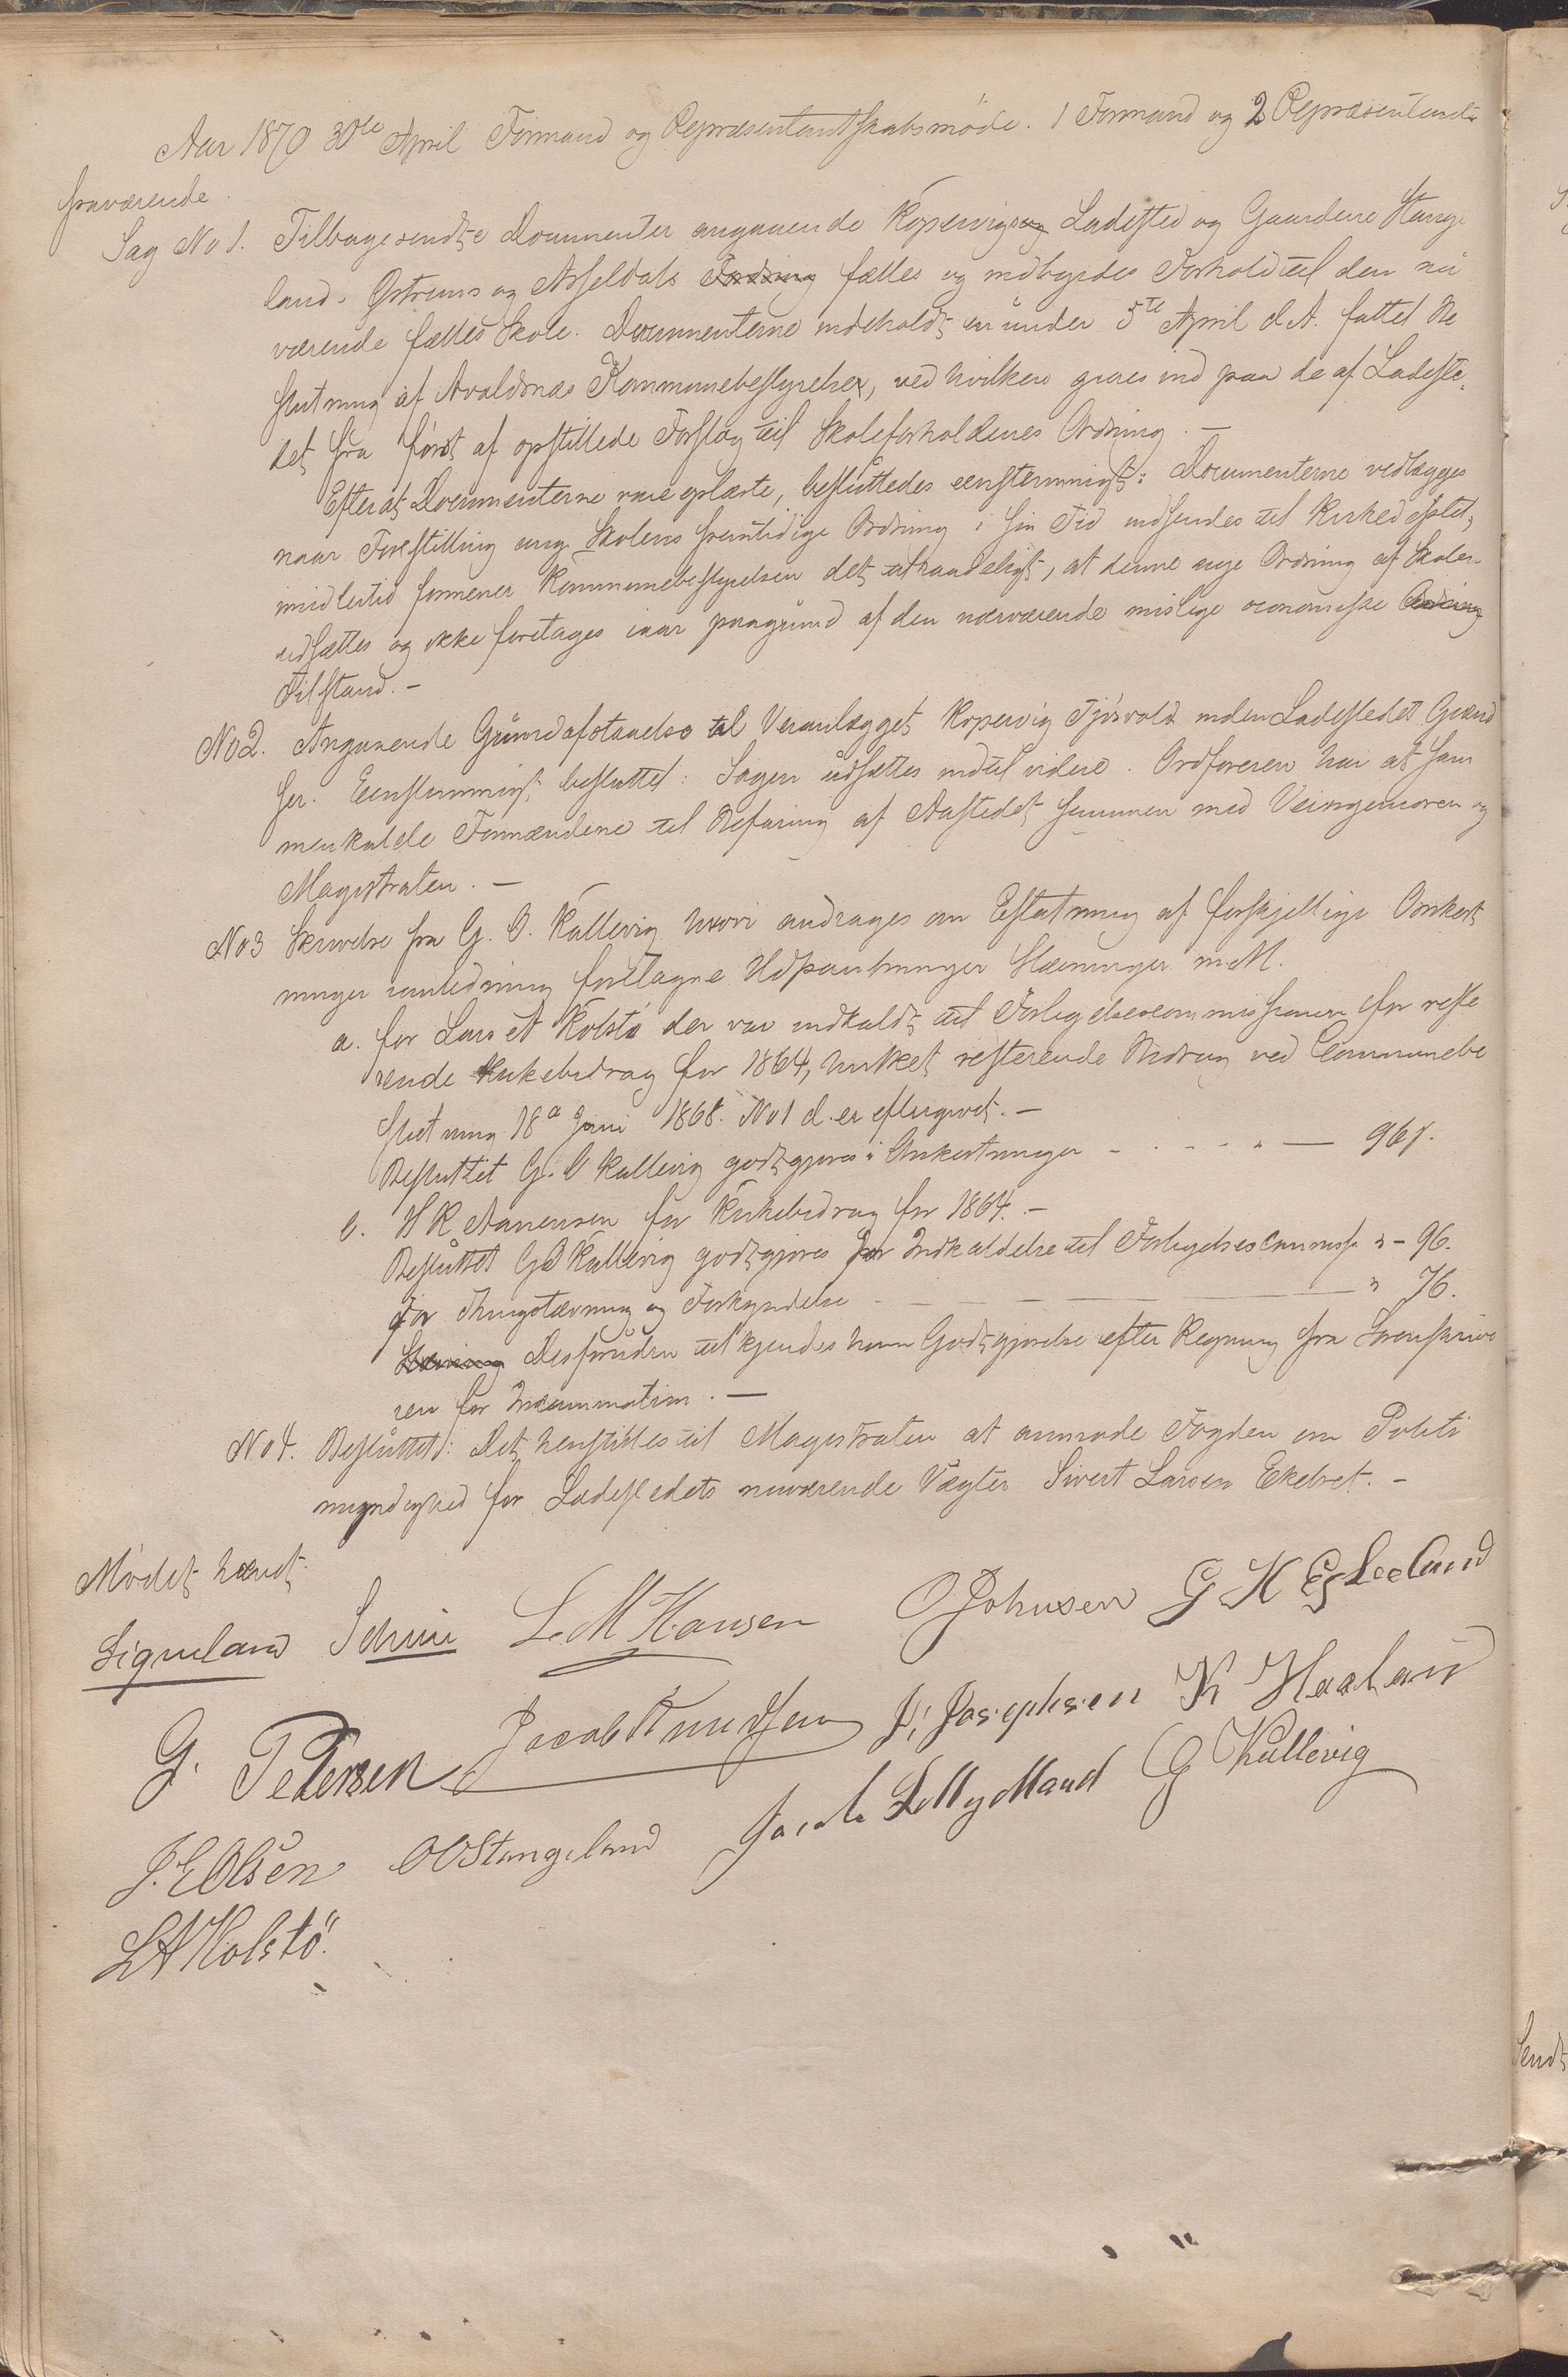 Aar 1870 30te April Formand og Repræsentantskabsmöde. 1 Formand og 2 Repræsentanter
fraværende.
Sag No 1. Tilbagesendte Documenter angaaende Kopervigs og Ladested og Gaardene Stange
land, Østrems og Aseldals Fordring fælles og indbyrdes Forhold til den nu
værende fælles Skole. Documenterne indeholdt en under 5te April d.A. fattet Be
slutning af Avaldsnæs Kommunebestyrelse, ved hvilken gaaes ind paa de af Ladeste-
det fra först af opstillede Forslag til Skoleforholdenes Ordning. —
Efterat Documenterne vare oplæste, besluttedes eenstemmigt: Documenterne vedlægges
naar Forestilling ang. Skolens fremtidige Ordning i sin Tid indsendes til Kirkedeptet,
midlertid formener Kommunebestyrelsen det tilraadeligt, at denne nye Ordning af Skolen
udsættes og ikke foretages iaar paagrund af den nærværende mislige oconomiske Ordning
Tilstand. —
No 2. Angaaende Grundafstaaelse til Veianlægget Kopervig Tjösvold inden Ladestedet Grænd
ser. Eenstemmigt besluttet: Sagen udsættes indtil videre. Ordföreren har at sam
menkalde Formændene til Befaring af Aastedet sammen med Veiingeniøren og
Magistraten. —
No 3 Skrivelse fra G. O. Kallevig hvori andrages om Erstatning af forskjellige Omkost
ninger ianledning foretagne Udpantninger Stævninger m.M.
a. for Lars A Kolstö der var indkaldt til Forligelsescommissionen for reste
rende Kirkebidrag for 1864, hvilket resterende Bidrag ved Communebe
slutning 18a Juni 1868. No 1 d. er eftergivet. —
Besluttet G. O Kallevig godtgjøres i Omkostninger - - - - " — 96 s.
b. H R Aanensen for Kirkebidrag for 1864. —
Besluttet G O Kallevig godtgjøres for Indkaldelse til Forligelsescommiss " - 96.
For Thingstævning og Forkyndelse - — — — " 76.
Stævning Desforuden tilkjendes ham Godtgjørelse efter Regning fra Sorenskrive
ren for Incammation. —
No 4. Besluttet: Det henstilles til Magistraten at anmode Fogden om Politi
myndighed for Ladestedets nuværende Vægter Sivert Larsen Ekebret. —
Mødet hævet.
Ligneland Schiui L. M Hansen O Johnsen G K Eskeland
G. Petersen Jacob Knudsen J. Josephsen K Haaland
J. E Olsen O O Stangeland Jacob L Mydland G Kallevig
L A Kolstö.
Sendt